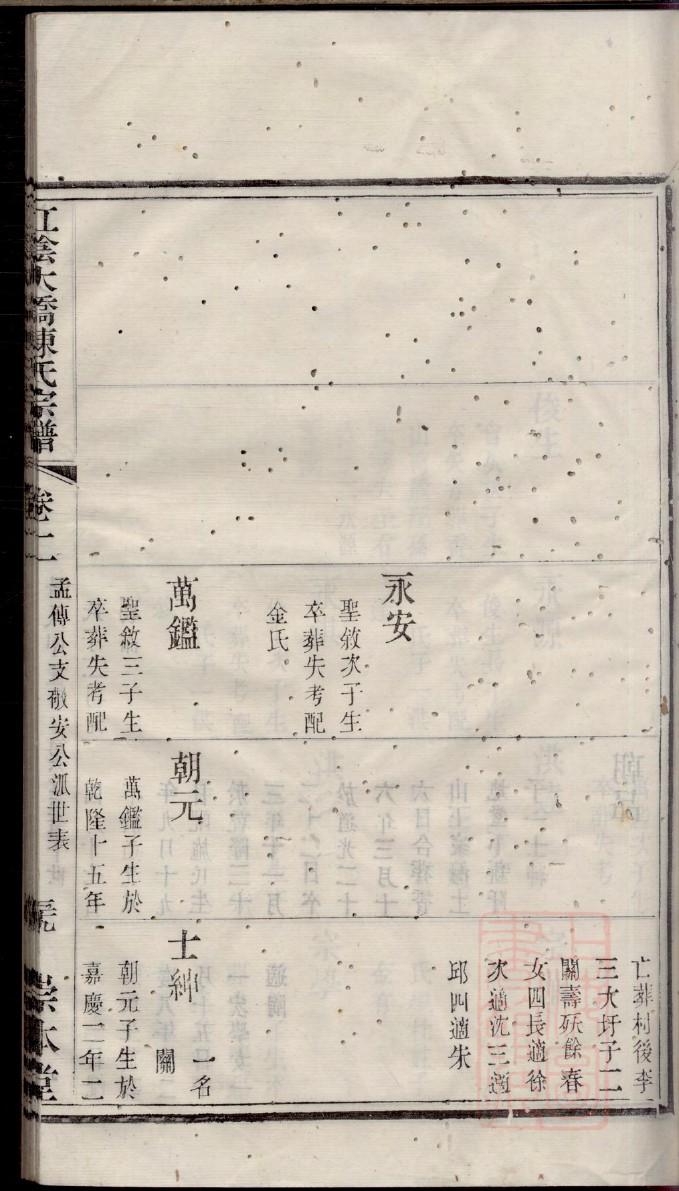 永安
聖敘次子生
卒葬失考配
金氏
萬鑑
聖敘三子生
卒葬失考配
朝元
萬鑑子生於
乾隆十五年
亡葬村後李
三大圩子二
關壽殀餘春
女四長適徐
次適沈三適
邱四適朱
士紳
一名
關
朝元子生於
嘉慶二年二
江陰大橋陳氏宗譜
卷十二
孟傳公支敬安公派世表
崇本堂